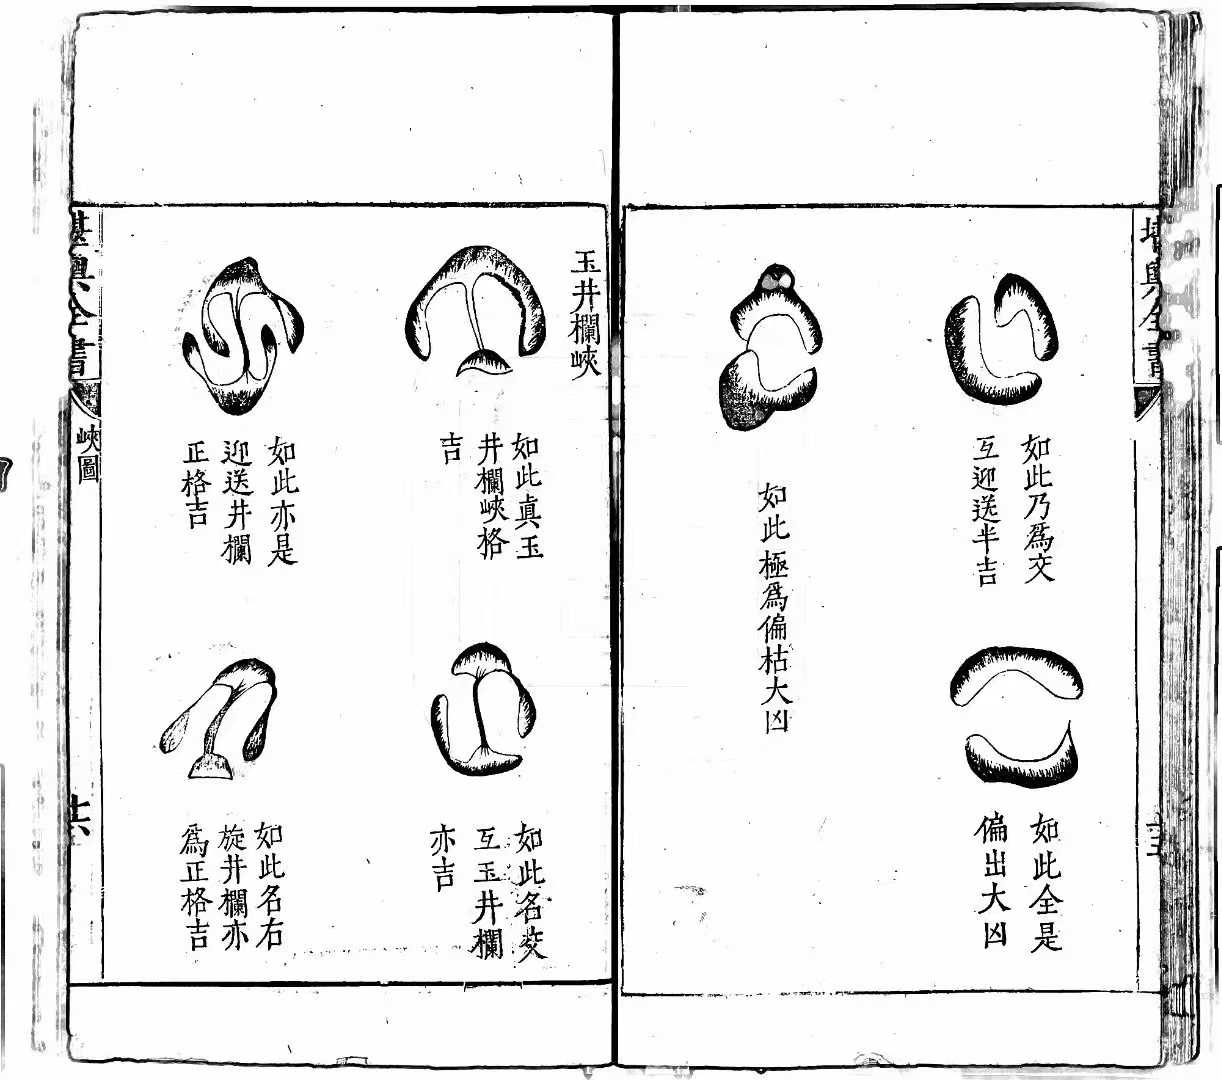 堪輿全書
如此乃爲交
互迎送半吉
如此全是
偏出大凶
如此極爲偏枯大凶
十五
玉井欄峽
如此眞玉
井欄峽格
吉
如此名交
互玉井欄
亦吉
如此亦是
迎送井欄
正格吉
如此名右
旋井欄亦
爲正格吉
堪輿全書
峽圖
十六